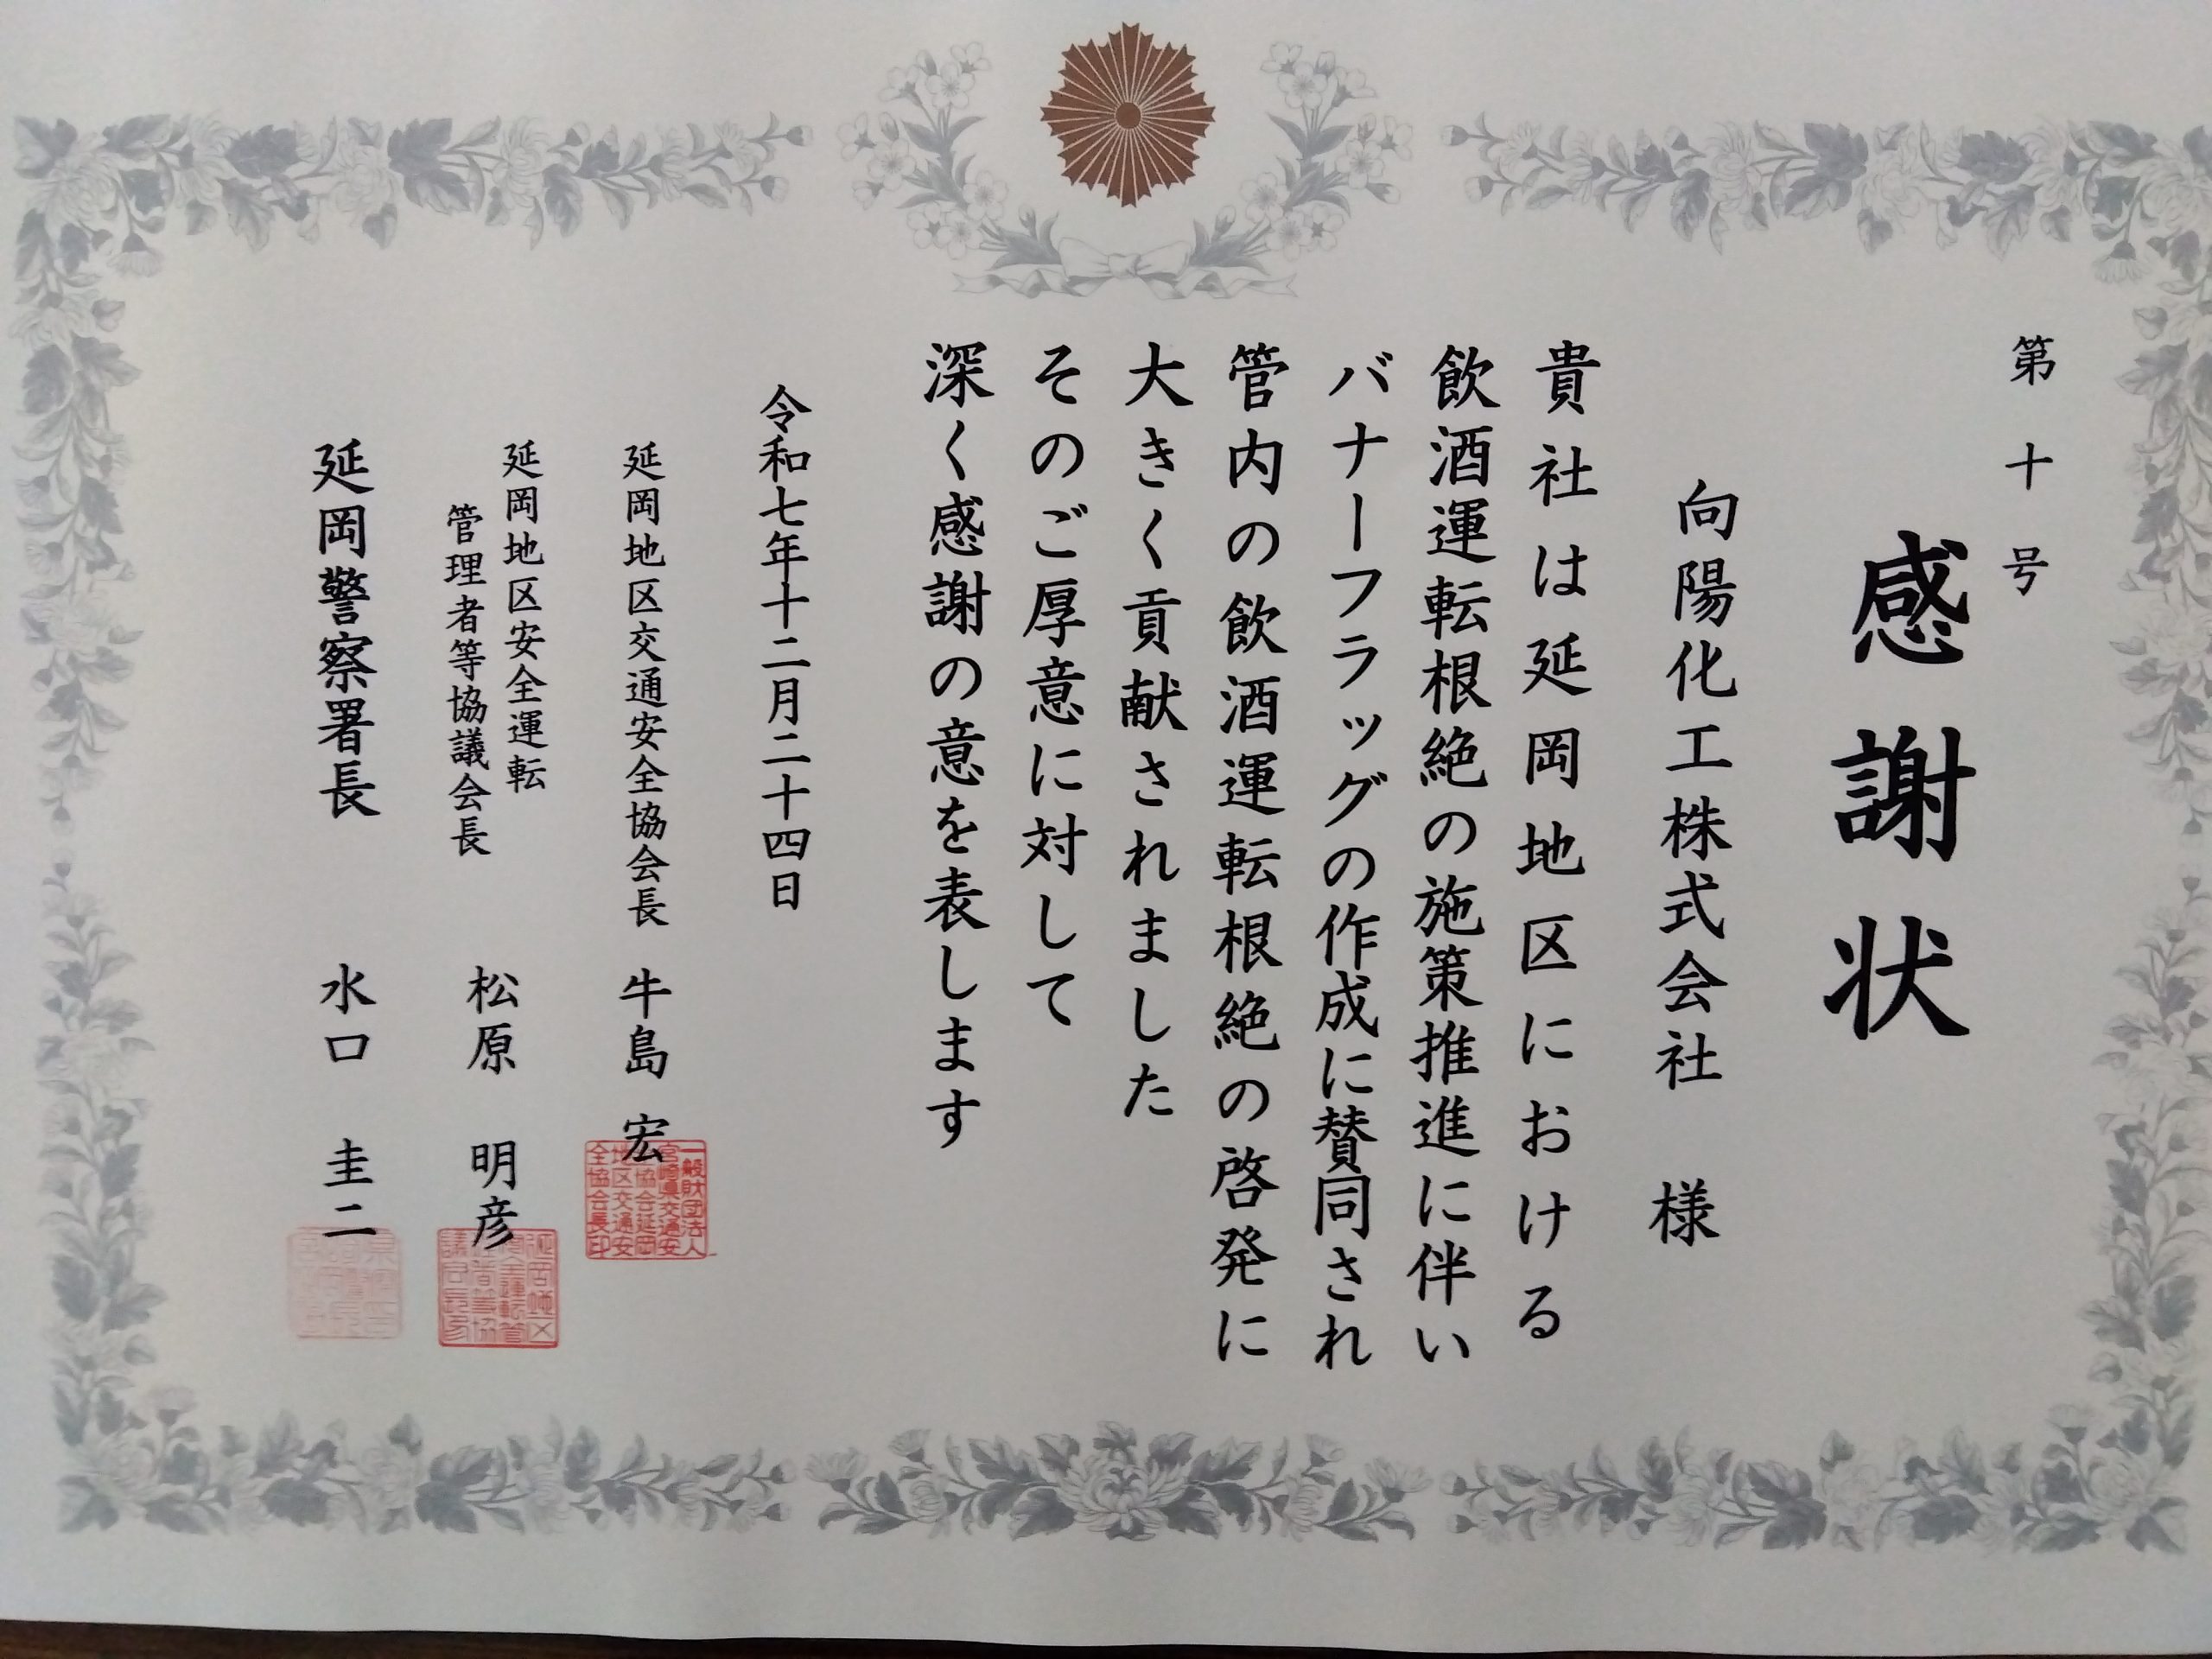 第十号
感謝状
向陽化工株式会社 様
貴社は延岡地区における
飲酒運転根絶の施策推進に伴い
バナーフラッグの作成に賛同され
管内の飲酒運転根絶の啓発に
大きく貢献されました
そのご厚意に対して
深く感謝の意を表します
令和七年十二月二十四日
延岡地区交通安全協会長 牛島 宏
一般財団法人
宮崎県交通安
全協会延岡
地区交通安
全協会長印
延岡地区安全運転
管理者等協議会長 松原 明彦
延岡警察署長 水口 圭二